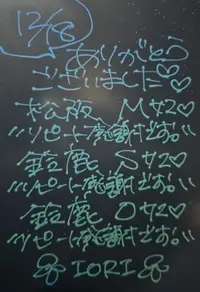 12/18
ありがとう
ございました♡♡
松阪 Mサマ♡
リピート感謝です。
鈴鹿 Sサマ♡
リピート感謝です。
鈴鹿 Oサマ♡
リピート感謝です。
IORI